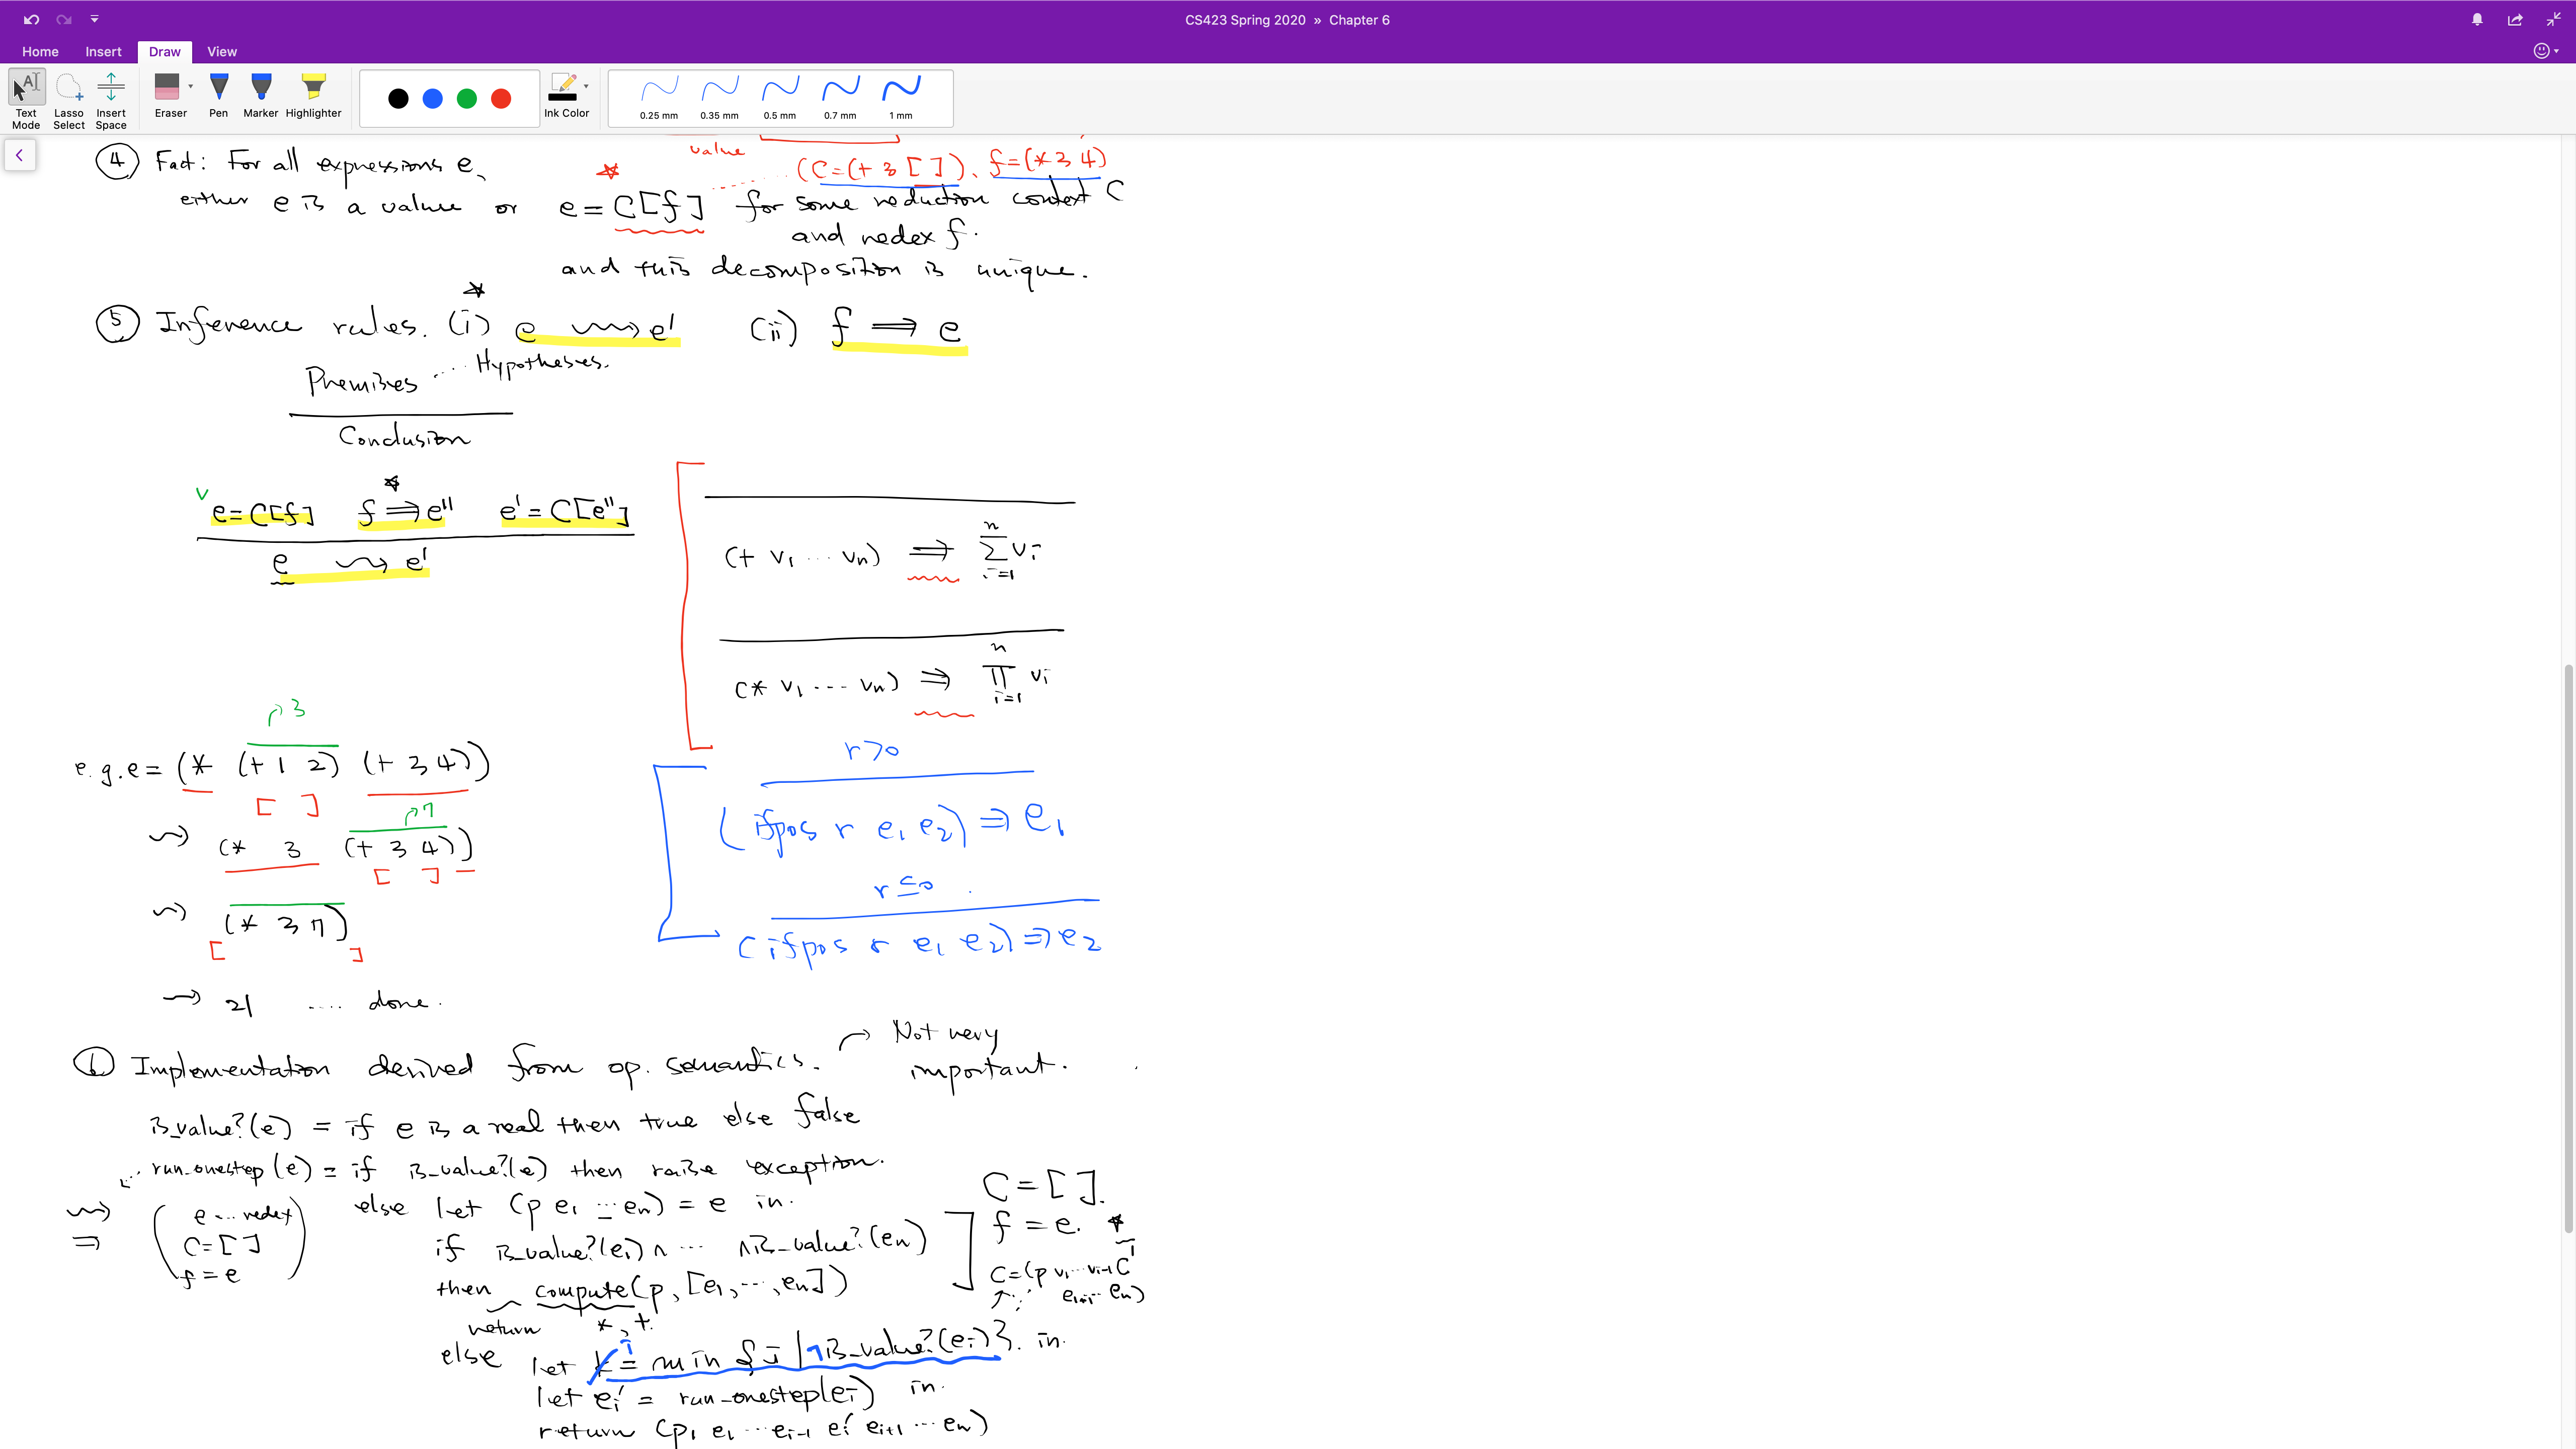 CS423 Spring 2020 » Chapter 6
Home Insert Draw View
Text Mode
Lasso Select
Insert Space
Eraser
Pen
Marker
Highlighter
Ink Color
0.25 mm
0.35 mm
0.5 mm
0.7 mm
1 mm
value
(C=(+ 3 [ ]), f=(* 3 4)
④ Fact: For all expressions e,
either e is a value or e = C[f] for some reduction context C
and redex f.
and this decomposition is unique.
⑤ Inference rules. (i) e ⇝ e' (ii) f ⟹ e
Premises ···· Hypotheses.
Conclusion
v e=C[f] f ⟹ e'' e' = C[e'']
e ⇝ e'
(+ v₁ ··· vₙ) ⟹ ∑ⁿᵢ₌₁ vᵢ
(* v₁ ··· vₙ) ⟹ ∏ⁿᵢ₌₁ vᵢ
↱3
e.g. e = (* (+ 1 2) (+ 3 4))
[ ]
↱7
⇝ (* 3 (+ 3 4))
[ ]
⇝ (* 3 7)
[ ]
⇝ 21 ···· done.
r>0
(ifpos r e₁ e₂) ⟹ e₁
r≤0
(ifpos r e₁ e₂) ⟹ e₂
⑥ Implementation derived from op. semantics.
Not very
important.
is_value?(e) = if e is a real then true else false
run_onestep(e) = if is_value?(e) then raise exception.
else let (p e₁ ··· eₙ) = e in.
if is_value?(e₁) ∧ ··· ∧ is_value?(eₙ)
then compute(p, [e₁, ···, eₙ])
return *, +.
else let i = min {i | ¬is_value?(eᵢ)}. in.
let eᵢ' = run_onestep(eᵢ) in.
return (p, e₁ ··· eᵢ₋₁ eᵢ' eᵢ₊₁ ··· eₙ)
⇝
⟹
e ··· redex
C=[ ]
f = e
C = [ ].
f = e.
C=(p v₁ ··· vᵢ₋₁ C'
eᵢ₊₁ ·· eₙ)